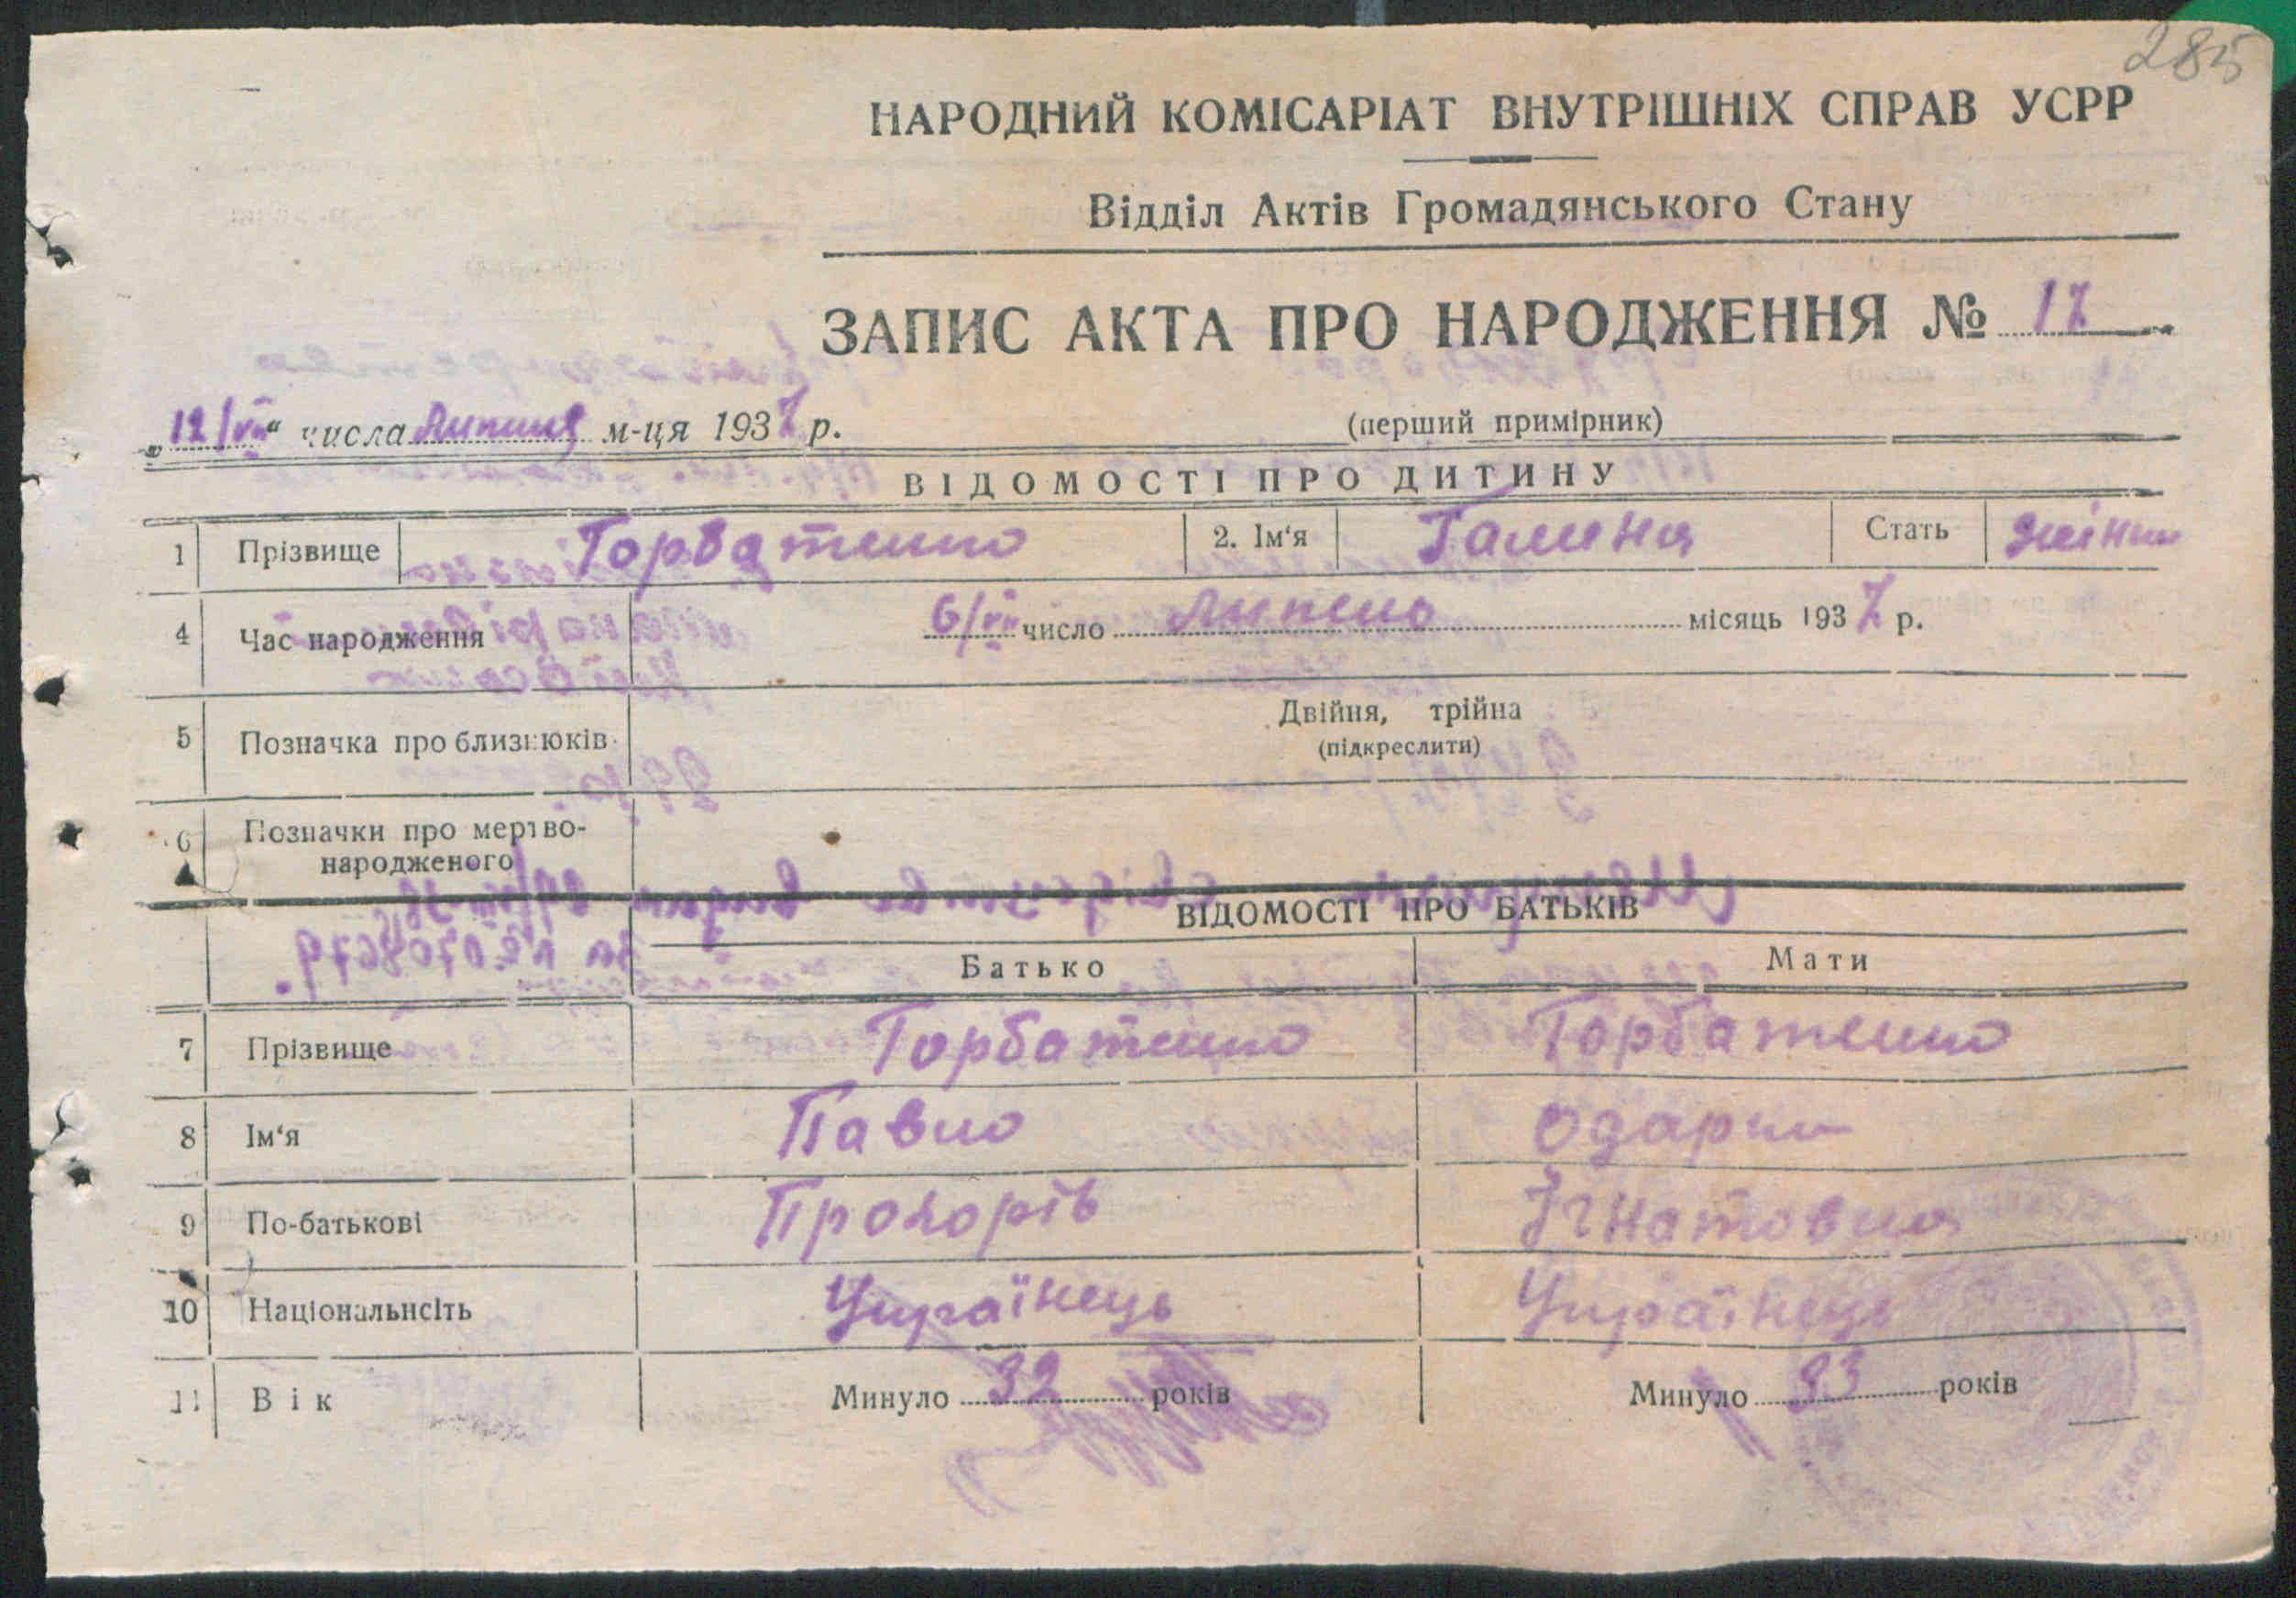 285
НАРОДНИЙ КОМІСАРІАТ ВНУТРІШНІХ СПРАВ УСРР
Відділ Актів Громадянського Стану
ЗАПИС АКТА ПРО НАРОДЖЕННЯ № 17
„12/VII“ числа Липня м-ця 1937 р.
(перший примірник)
ВІДОМОСТІ ПРО ДИТИНУ
1 Прізвище Горбатенко 2. Ім'я Галина Стать
4 Час народження 6/VII число Липень місяць 1937 р.
5 Позначка про близнюків Двійня, трійна
(підкреслити)
6 Позначки про мертво-
народженого
ВІДОМОСТІ ПРО БАТЬКІВ
Батько Мати
7 Прізвище Горбатенко Горбатенко
8 Ім'я Павло Одарка
9 По-батькові Прохорів Ігнатовна
10 Національнсіть Українець Українець
11 Вік Минуло 32 років Минуло 33 років